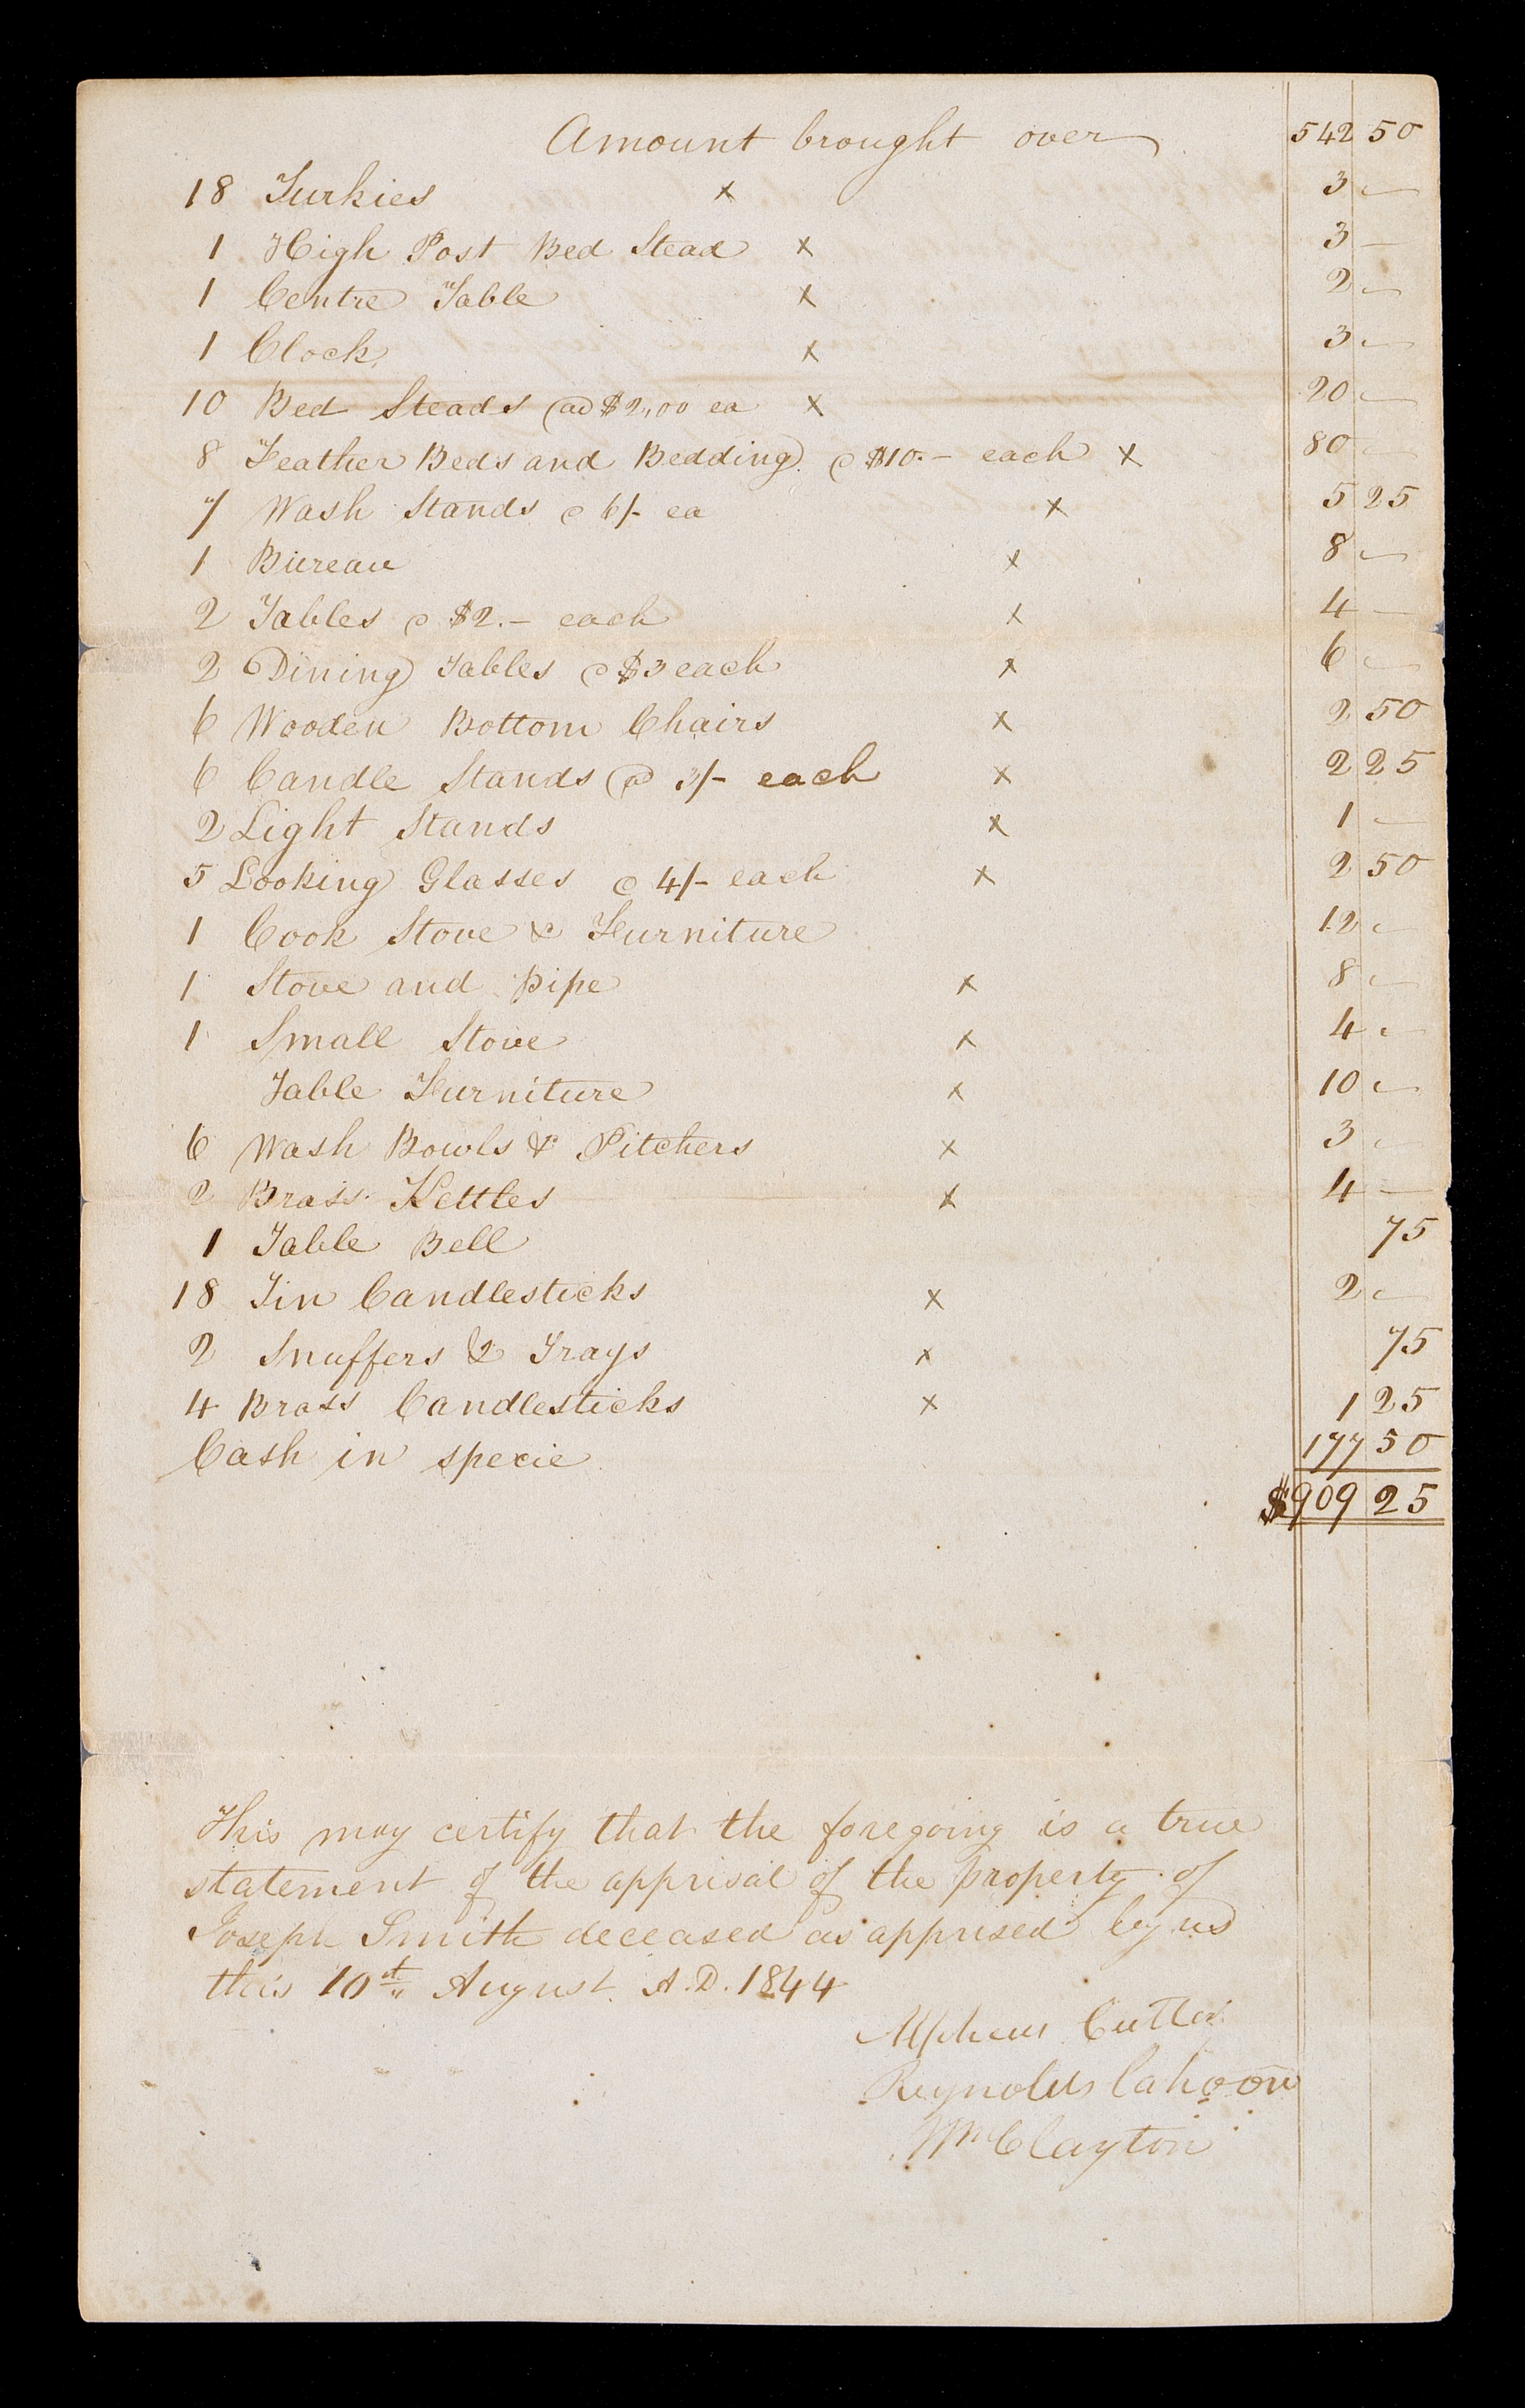 Amount brought over 542 50
18 Turkies x 3 —
1 High Post Bed Stead x 3 —
1 Centre Table x 2 —
1 Clock x 3 —
10 Bed Steads @ $2,,00 ea x 20 —
8 Feather Beds and Bedding @ $10.— each x 80 —
7 Wash Stands @ 6/- ea x 5 25
1 Bureau x 8 —
2 Tables @ $2.— each x 4 —
2 Dining Tables @ $3 each x 6 —
6 Wooden Bottom Chairs x 2 50
6 Candle Stands @ 3/- each x 2 25
2 Light Stands x 1 —
5 Looking Glasses @ 4/- each x 2 50
1 Cook Stove & Furniture 12 —
1 Stove and Pipe x 8 —
1 Small Stove x 4 —
Table Furniture x 10 —
6 Wash Bowls & Pitchers x 3 —
2 Brass Kettles x 4 —
1 Table Bell 75
18 Tin Candlesticks x 2 —
2 Snuffers & 2 Trays x 75
4 Brass Candlesticks x 1 25
Cash in specie 177 50
$909 25
This may certify that the foregoing is a true
statement of the apprisal of the property of
Joseph Smith deceased as apprised by us
this 10st,, August. A.D. 1844
Alpheus Cutler
Reynolds Cahoon
Wm Clayton